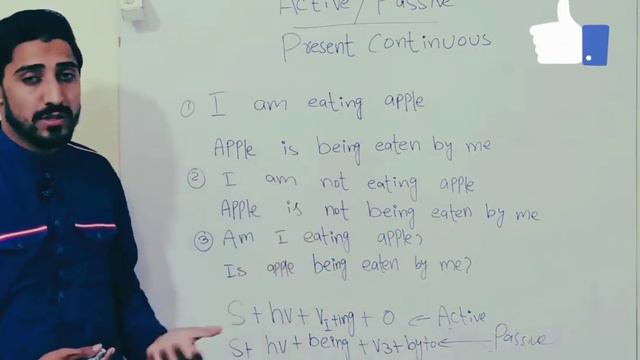 Active / Passive
Present Continuous
① I am eating apple
Apple is being eaten by me
② I am not eating apple
Apple is not being eaten by me
③ Am I eating apple?
Is apple being eaten by me?
S + hv + V1+ing + O ← Active
S + hv + being + V3 + by+o ← Passive